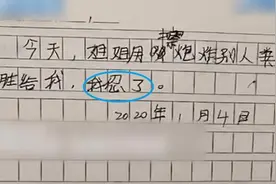 今天，姐姐用摔炮炸别人类
胜给我，我忍了。
2020年1月4日